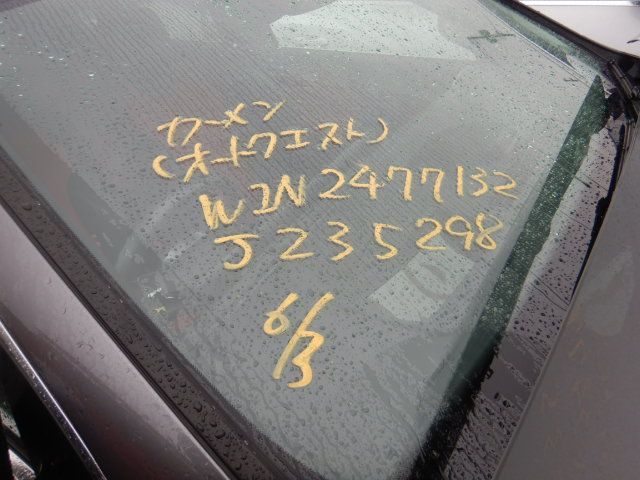 カーメン
(オートクエスト)
WIN2477132
J235298
6/3